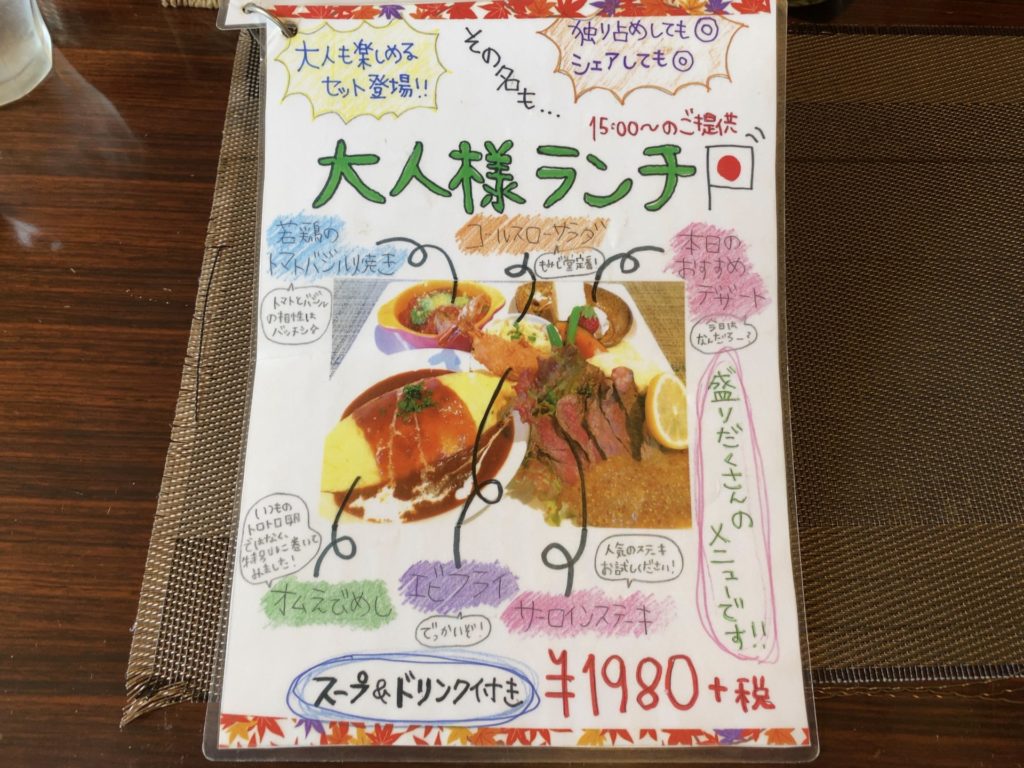 大人も楽しめる
セット登場!!
その名も...
独り占めしても◎
シェアしても◎
15:00〜のご提供
大人様ランチ
若鶏の
トマトバジル焼き
トマトとバジル
の相性は
バッチシ☆
コールスローサラダ
もみじ堂定番!
本日の
おすすめ
デザート
今日は
なんだろー?
盛りだくさんのメニューです!!
いつもの
トロトロ卵
ではなく、
巻いて
みました!
オムえびめし
エビフライ
でっかいぞ!
人気のステーキ
お試しください!
サーロインステーキ
スープ&ドリンク付き
¥1980+税